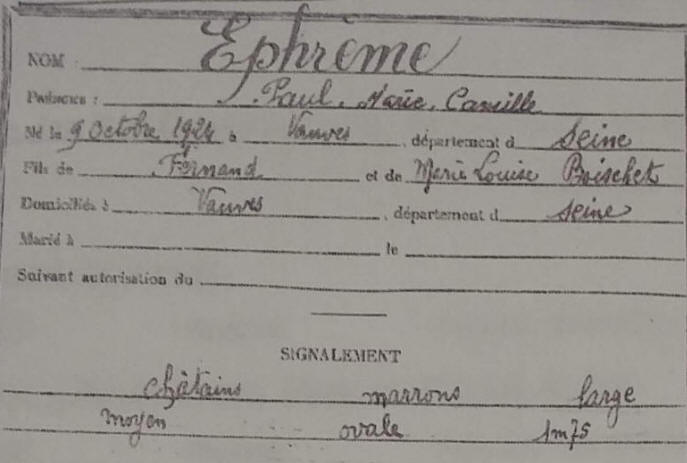 NOM : Ephrème
Prénoms : Paul, Marie, Camille
Né le 9 Octobre 1924 à Vanves, département d Seine
Fils de Fernand et de Marie Louise Boischet
Domiciliés à Vanves, département d Seine
Marié à le
Suivant autorisation du
SIGNALEMENT
châtains marrons large
moyen ovale 1m75